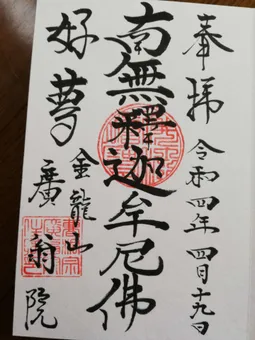 奉拝
令和四年四月十九日
南無釋迦牟尼佛
好夢
金龍山
廣翁院